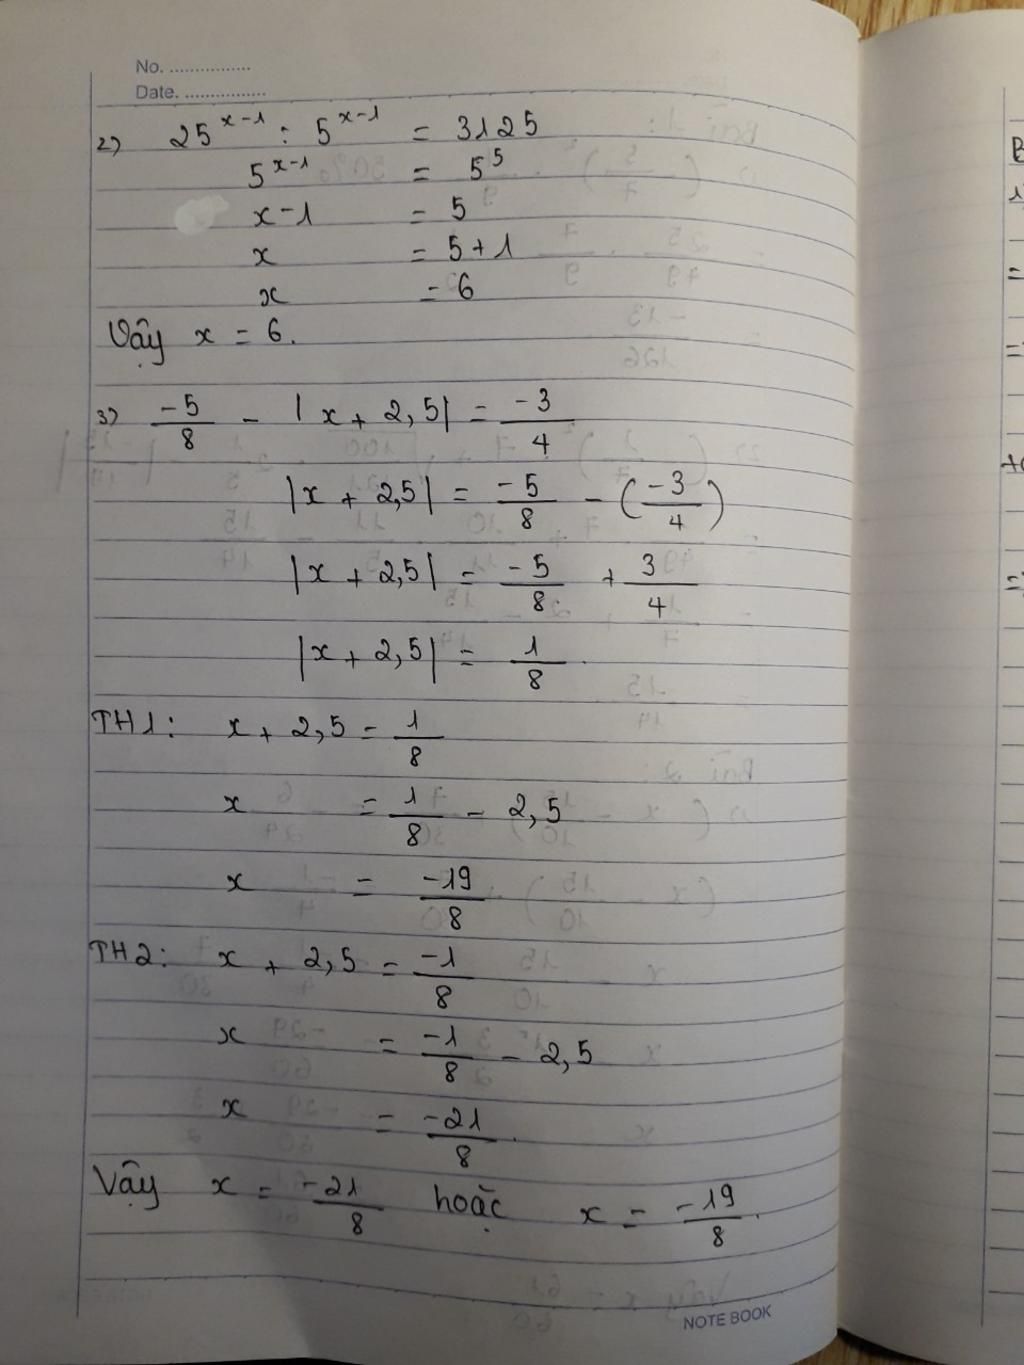 No. ................
Date. ................
2) 25^{x-1} : 5^{x-1} = 3125
5^{x-1} = 5^5
x-1 = 5
x = 5+1
x = 6
Vậy x = 6.
3) -5/8 - |x + 2,5| = -3/4
|x + 2,5| = -5/8 - (-3/4)
|x + 2,5| = -5/8 + 3/4
|x + 2,5| = 1/8.
TH1: x + 2,5 = 1/8
x = 1/8 - 2,5
x = -19/8
TH2: x + 2,5 = -1/8
x = -1/8 - 2,5
x = -21/8.
Vậy x = -21/8 hoặc x = -19/8.
NOTE BOOK